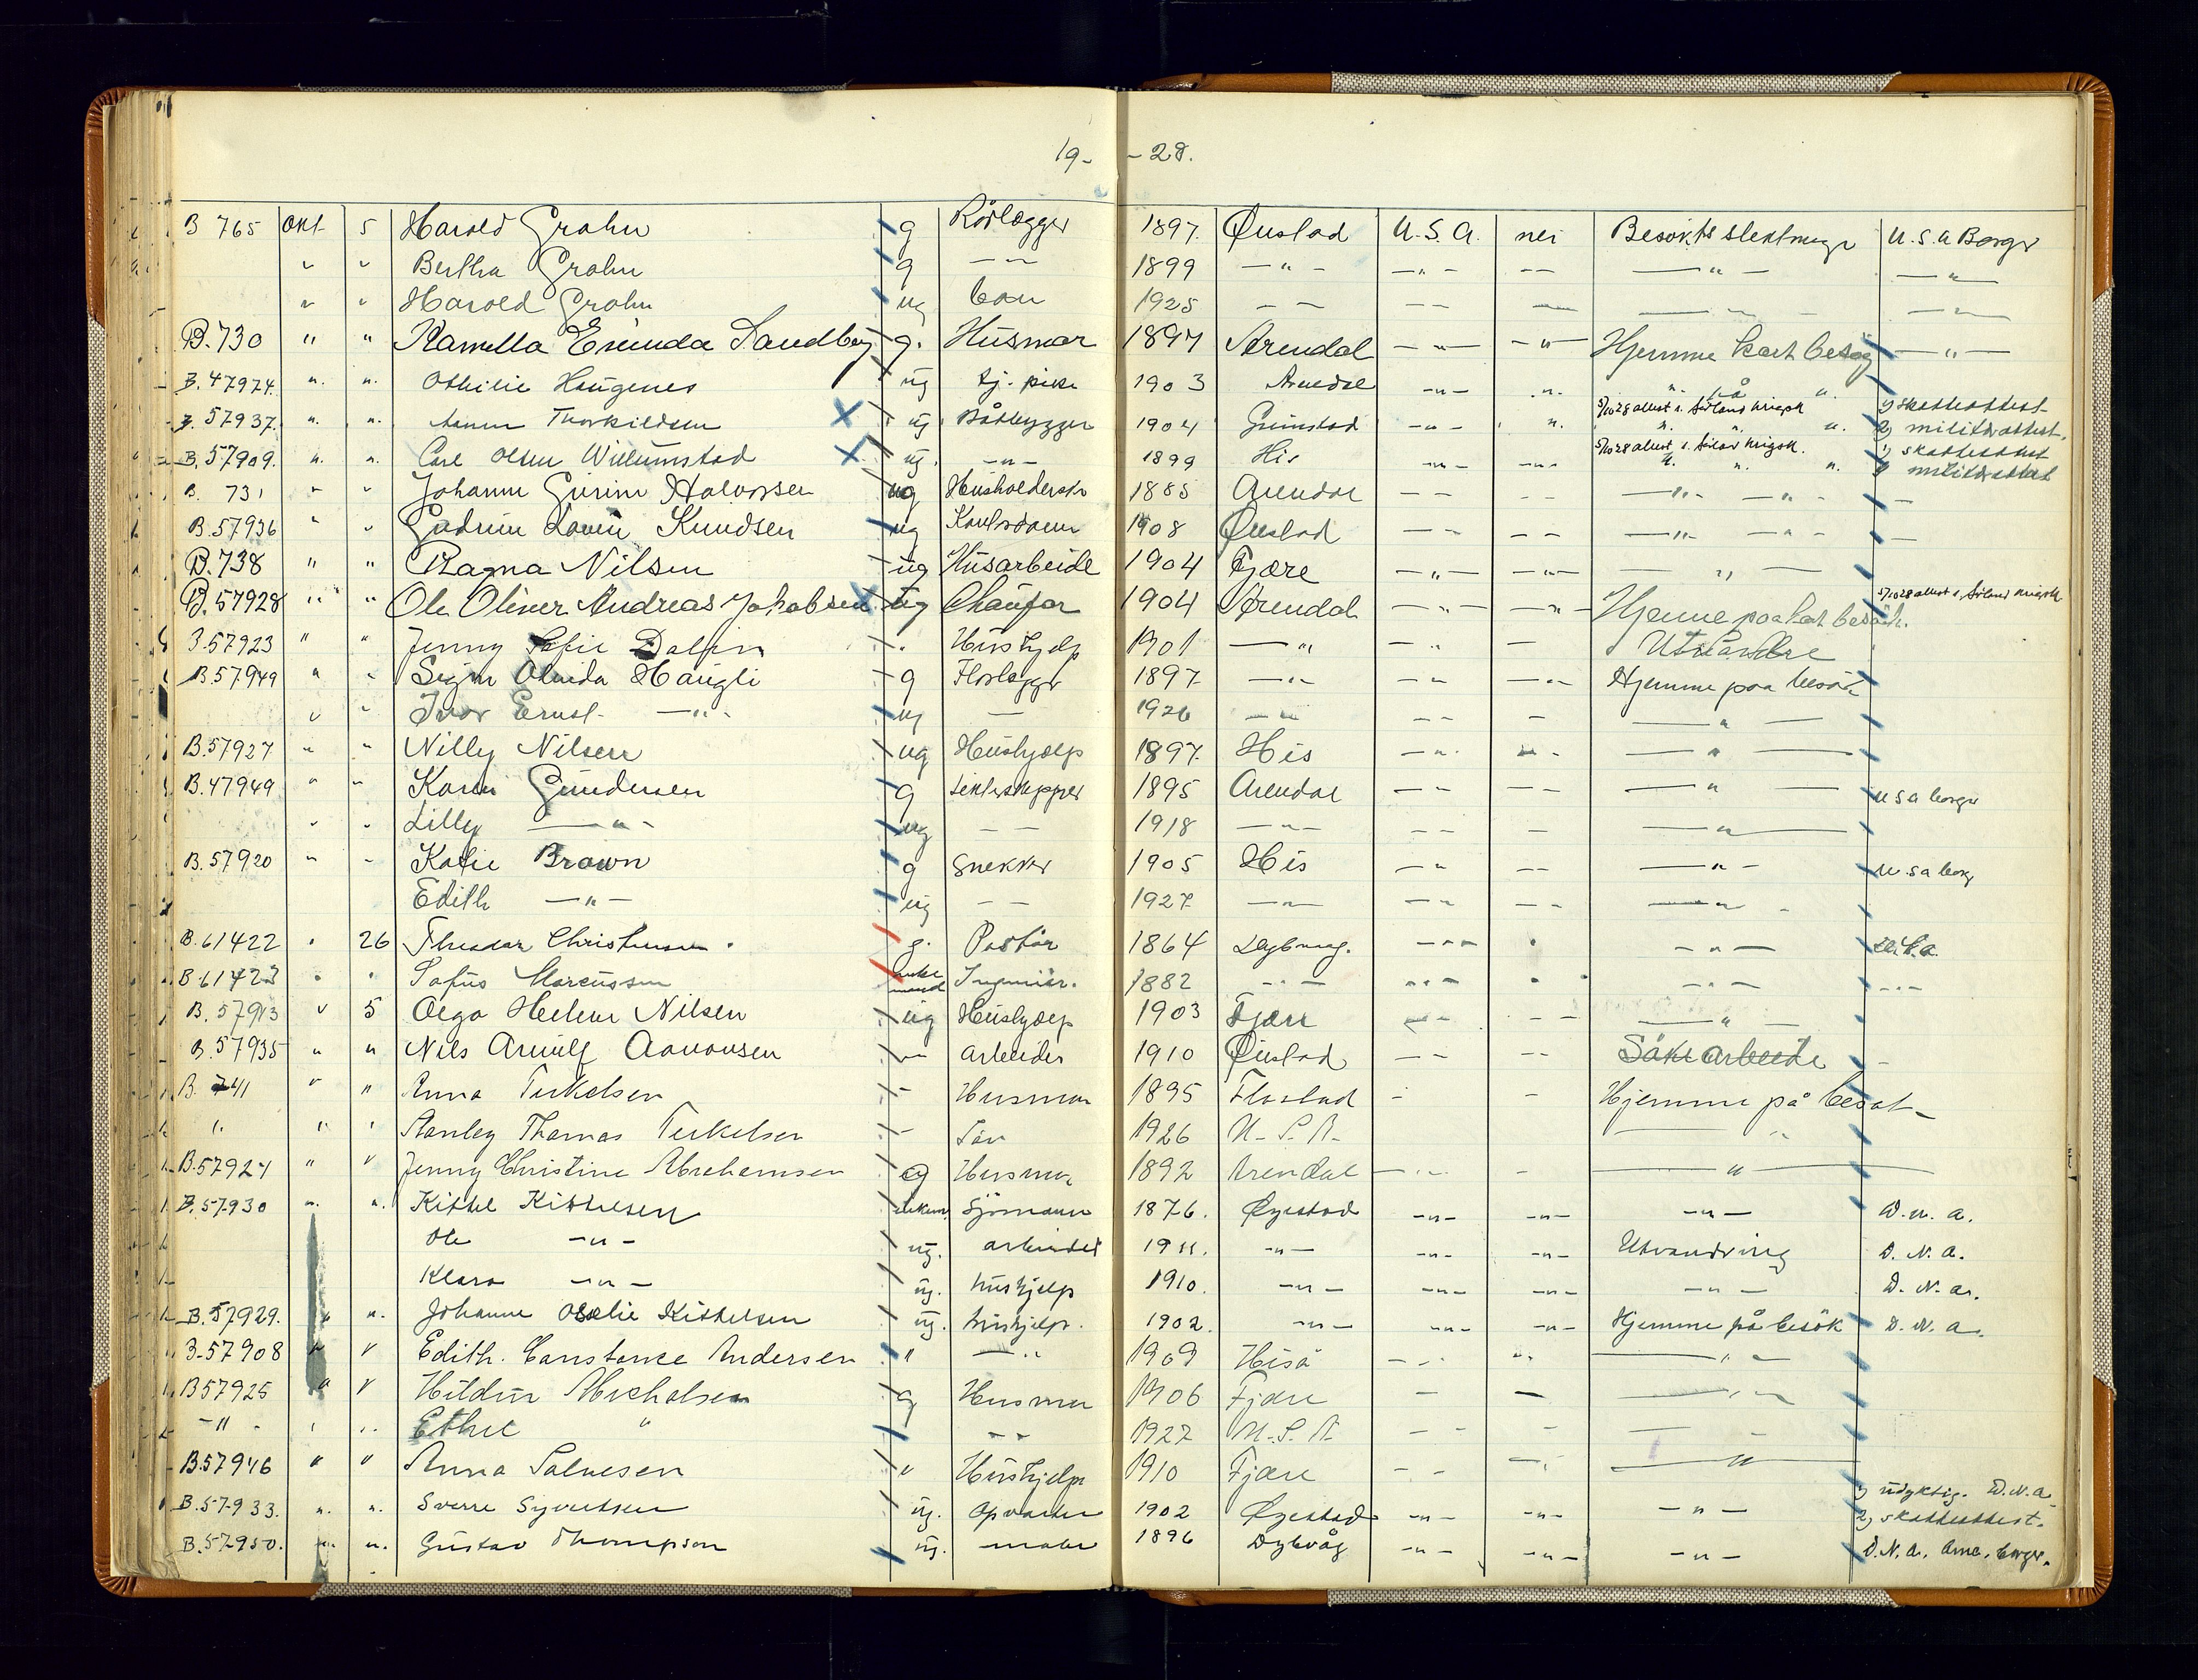 19- -28.
B 765 Okt 5 Harold Grahn g Rörlegger 1897. Öiestad U.S.A. nei Besøkt slektninge U.S.a Borger
" " Bertha Grahn g -"- 1899 -"- -"- -- -"- -"-
" " Harold Grahn ug barn 1925 -- -- -- -"- -"-
B.730 " " Kamilla Erinda Sandberg g. Husmor 1897 Arendal -"- -"- Hjemme kort besøg -"-
B.47974. ". ". Othilie Haugenes ug tj. pike 1903 Arendal -"- ". ". på ".
B.57937. ". ". Thorkildsen ug Båtbygger 1904 Grimstad -"- ". 5/10 28 attest s. Sörland krigsk ". ". ". 1) skatteattest 2) militærattest.
B.57909. ". ". Carl Olsen Willumstad ug. -"- 1899 His -"- -"- 5/10 28 attest s. Sörland krigsk. ". ". ". 1) skatteattest 2) militærattest
B. 731 " " Johanne Gurine Halvorsen ug Husholderske 1885 Arendal -- -- -"- -"- -
B.57936 " " Gudrun Lovise Knudsen ug Kontordame 1908 Öiestad -- -- -"- -"- -
B.738 " " Ragna Nilsen ug Husarbeide 1904 Fjære -"- -"- -"-
B.57928 " " Ole Oliver Andreas Jakobsen ug Chaufør 1904 Arendal -"- -"- Hjemme paa kort besøk. 5/10 28 attest s. Sörland krigsk
B.57923 " " Jenny Sofie Dalfin " Hushjelp 1901 -"- -"- - Utvandre
B.57949 " " Signe Olvida Haugli g 1897 -"- -- -"- Hjemme paa besök
" " Ivar Ernst -"- ug - 1926 -"- -- - -"-
B.57927 " " Nilly Nilsen ug Hushjelp 1897. His -"- -"- -"-
B.47949 " " Karen Gundersen g 1895 Arendal -- -- -"- u s a borger
" " Lilly -"- ug -- 1918 -"- -- - -"-
B.57920 " " Katie Brown g Snekker 1905 His -" -- -"- u. s a borg
Edith -"- ug -- 1927 -"- -" -- -"-
B.61422 " 26 Theodor Christensen. g. Pastör 1864 Dybvaag. -"- " -"-
B.61423 " " Sofus Marcussen enke mand Ingeniör. 1882 -"- -"- " -"- -"-
B.57913 " 5 Olga Helene Nilsen ug Hushjelp 1903 Fjære -"- -- -"-
B.57935 " " Nils Arnulf Aanonsen -"- arbeider 1910 Öiestad -- -- Söke arbeide -
B. 741 " " Anna Terkelsen - Husmor 1895 Flostad - - Hjemme på besøk -
" " " Stanley Thomas Terkelsen - Sön 1926 U.S.A. -"-
B.57924 " " Jenny Christine Abrahamsen g Husmor 1892 Arendal -"- - -"-
B.57930 ". ". Kittel Kittelsen enkem. Sjömann 1876. Øyestad -"- -"- -"- D. N. a.
Ole -"- ug. arbeider 1911. -"- -"- -"- Utvandring D. N. a.
Klara -"- ug. hushjelp 1910. -"- -"- -"- -"- D. N. a.
B.57929. " ". Johanne Oselie Kittelsen ug. hushjelp. 1902. -"- -"- -"- Hjemme på besök D. N. a.
B.57908 " " Edith. Constance Andersen " -"- 1909 Hisö -"- " -"-
B57925 " " Hildur Michalsen g Husmor 1906 Fjære - - -"-
-"- " " Ethel " -"- 1927 U.S.A -- - -
B.57946 " " Anna Salvesen " Hushjelp 1910 Fjære -- -"- -"-
B.57933. ". ". Sverre Syvertsen ug. opvarter 1902 Øyestad -"- -"- -"- 1) udyktig. D.N.a. 2) skatteattest.
B.57950. ". ". Gustav Thompson ug. maler 1896 Dybvåg -"- -"- -"- D.N.a. Ame. borger.